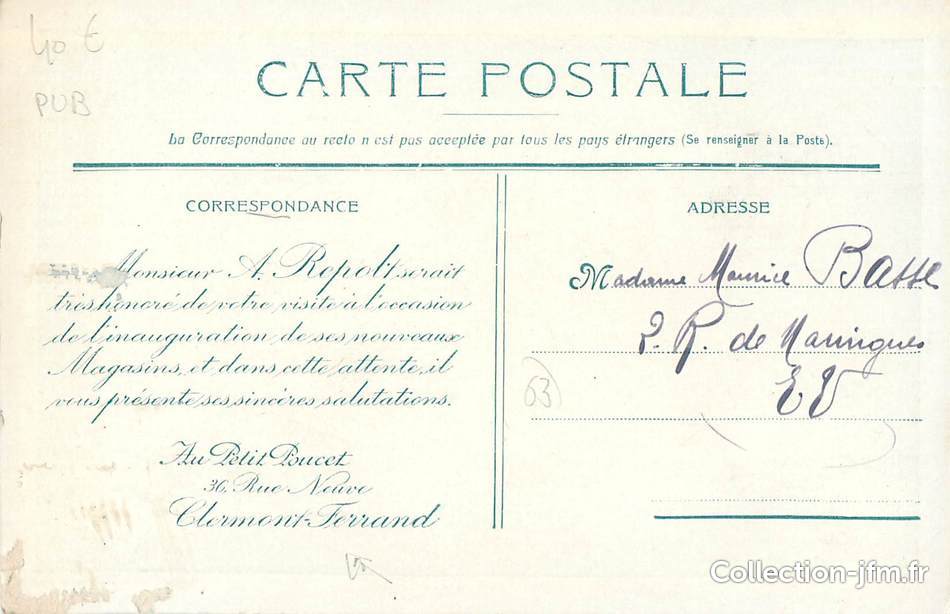 40 €
PUB
CARTE POSTALE
La Correspondance au recto n est pas acceptée par tous les pays étrangers (Se renseigner à la Poste).
CORRESPONDANCE
Monsieur A. Ropolt serait
très honoré de votre visite à l'occasion
de l'inauguration de ses nouveaux
Magasins, et dans cette attente, il
vous présente ses sincères salutations.
Au Petit Poucet
36, Rue Neuve
Clermont-Ferrand
ADRESSE
Madame Maurice Basse
2. R. de Maringues
EV
63
Collection-jfm.fr